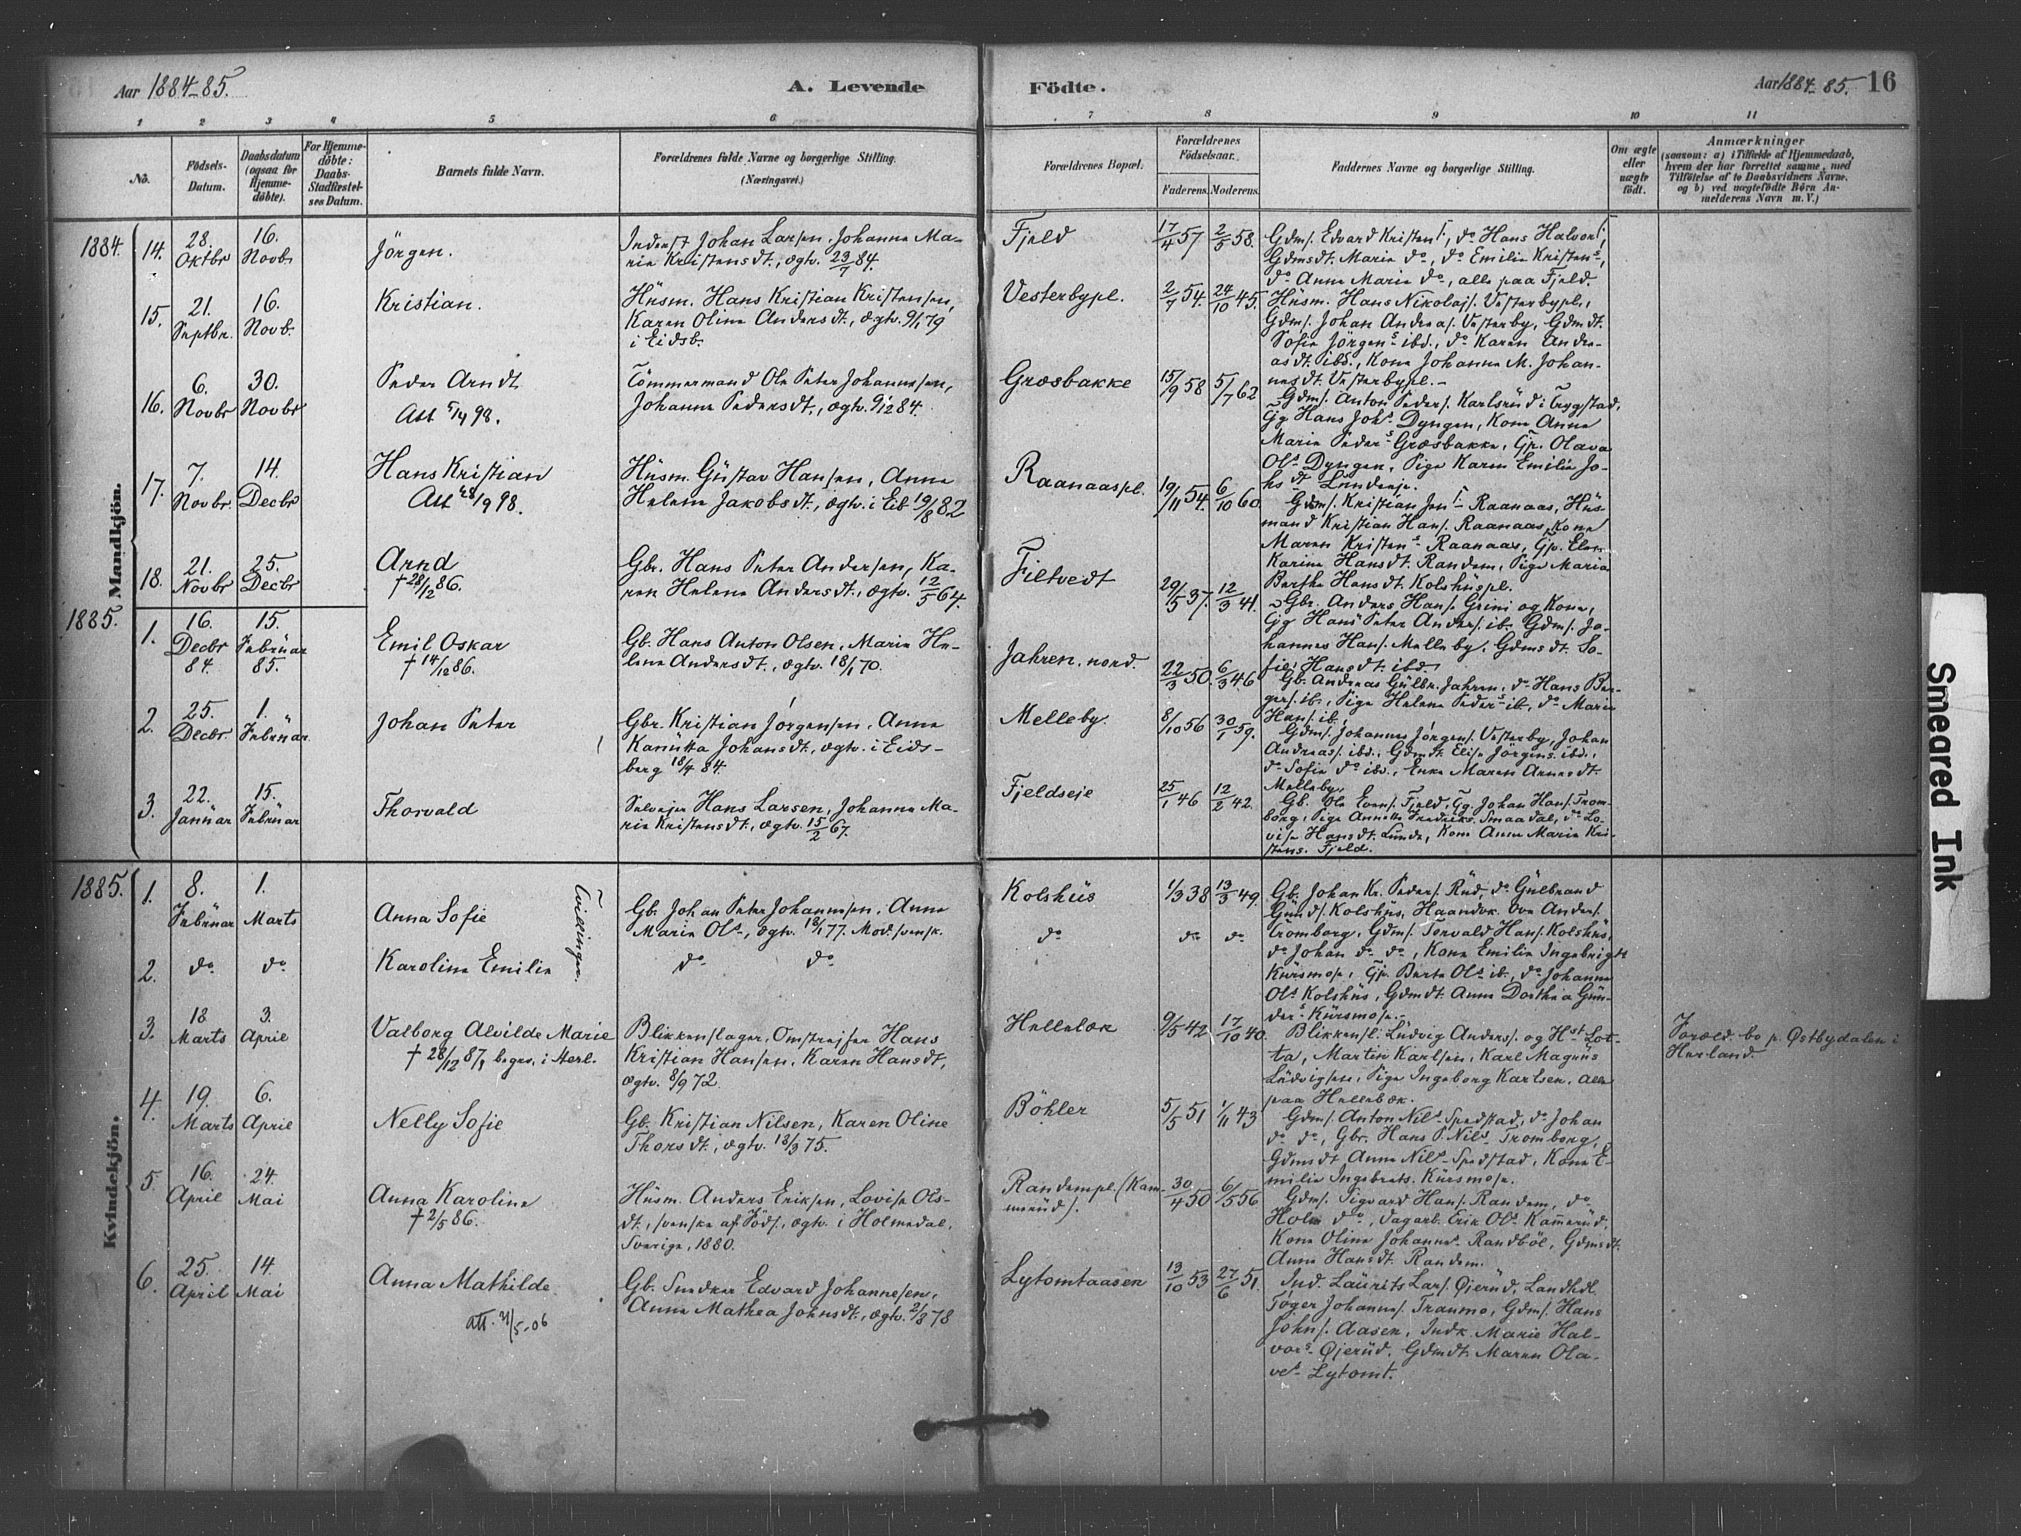 Aar 1884-85.
A. Levende
Födte.
Aar 1884-85. 16
1 2 3 4 5 6 7 8 9 10 11
No.
Födsels-Datum.
Daabsdatum (ogsaa for Hjemmedöbte).
For Hjemmedöbte: Daabs-Stadfæstelses Datum.
Barnets fulde Navn.
Forældrenes fulde Navne og borgerlige Stilling. (Næringsvei.)
Forældrenes Bopæl.
Forældrenes Födselsaar.
Faderens. Moderens.
Faddernes Navne og borgerlige Stilling.
Om ægte eller uægte födt.
Anmærkninger
(saasom: a) i Tilfælde af Hjemmedaab,
hvem der har forrettet samme, med
Tilföielse af to Daabsvidners Navne,
og b) ved uægtefödte Börn An-
melderens Navn m. V.)
Mandkjön.
1884.
14. 28. Oktbr 16. Novb. Jörgen.
Inderst Johan Larsen, Johanne Ma-
rie Kristensdt., ægtv. 23/1 84.
Fjeld 17/4 57 2/5 58.
Gdms. Edvard Kristens., do Hans Halvors.,
Gdmsdt. Marie do, do Emilie Kristens.,
do Anne Marie do, alle paa Fjeld.
15. 21. Septbr. 16. Novb. Kristian.
Husm. Hans Kristian Kristensen,
Karen Oline Andersdt., ægtv. 9/1 79
i Eidsb.
Vesterbypl. 2/1 54. 24/10 45.
Husm. Hans Nikolajs. Vesterbypl.,
Gdms. Johan Andreas. Vesterby, Gdmdt.
Sofie Jörgens. ibd., do Karen Andre-
asdt. ibd., Kone Johanne M. Johan-
nesdt. Vesterbypl.-
16. 6. Novbr 30. Novbr Peder Arndt
Att 5/4 98.
Tömmermand Ole Peter Johannesen,
Johanne Pedersdt., ægtv. 9/12 84.
Græsbakke 15/9 58 5/7 62
Gdms. Anton Peders. Karlsrud i Trygstad,
Gg Hans Johs. Dyngen, Kone Anne
Marie Peders. Græsbakke, Gp. Olava
Ols. Dyngen, Pige Karen Emilie Jo-
hsdt. Lundeeje.
17. 7. Novbr. 14. Decbr Hans Kristian
Att 28/9 98.
Husm. Gustav Hansen, Anne
Helene Jakobsdt., ægtv. i Eib 19/8 82
Raanaaspl. 19/11 54. 6/10 60.
Gdms. Kristian Jens. Raanaas, Hus-
mand Kristian Hans. Raanaas, Kone
Maren Kristens. Raanaas, Gp. Elen
Karine Hansdt. Randem, Pige Maria
Berthe Hansdt. Kolshuspl.
18. 21. Novbr 25. Decbr Arnd
† 28/12 86.
Gbr. Hans Peter Andersen, Ka-
ren Helene Andersdt., ægtv. 12/5 64.
Fjeltvedt 29/5 37. 12/3 41.
Gbr. Anders Hans. Grini og Kone,
Gg Hans Peter Anders. ib. Gdms. Jo-
hannes Hans. Melleby, Gdmsdt. So-
fie Hansdt. ibd.
1885.
1. 16. Decbr 84. 15. Februar 85. Emil Oskar
† 14/12 86.
Gb. Hans Anton Olsen, Marie He-
lene Andersdt., ægtv. 18/1 70.
Jahren, nord. 22/3 50. 6/3 46
Gb. Andreas Gulbr. Jahren, do Hans Bir-
gers. ib., Pige Helene Peders. ib., do Marie
Hans. ib.
2. 25. Decbr. 1. Februar. Johan Peter
Gbr. Kristian Jörgensen, Anne
Kanutta Johansdt., ægtv. i Eids-
berg 18/4 84.
Melleby. 8/10 56 30/1 59.
Gdms. Johannes Jörgens. Vesterby, Johan
Andreas. ibd., Gdmdt. Elise Jörgens. ibd.,
do Sofie do ibd., Enke Maren Arnesdt.
Melleby.
3. 22. Januar 15. Februar Thorvald
Selvejer Hans Larsen, Johanne Ma-
rie Kristensdt., ægtv. 15/2 67.
Fjeldseje 25/1 46 12/2 42.
Gb. Ole Evens. Fjeld, Gg. Johan Hans. Trom-
borg, Pige Annette Fredriks. Smaadal, do Lo-
vise Hansdt. Lunde, Kone Anne Marie Kri-
stens. Fjeld.
Kvindekjön.
1885.
1. 8. Februar 1. Marts Anna Sofie
Tvillinger.
Gb. Johan Peter Johannesen, Anne
Marie Ols., ægtv. 18/1 77. Mod. svensk.
Kolshus 1/3 38 13/3 49.
Gb. Johan Kr. Peders. Rud, do Gulbrand
Gunds. Kolshus, Haandv. Ove Anders.
Tromborg, Gdms. Torvald Hans. Kolshus,
do Johan do do, Kone Emilie Ingebrigt.
Kursmose, Gp. Berte Ols. ib., do Johanne
Ols. Kolshus, Gdmdt. Anne Dorthea Gun-
ders. Kursmose.-
2. do do Karoline Emilie do do
do do do
3. 18 Marts 3. April Valborg Alvilde Marie
† 28/12 87, begr. i Herl.
Blikkenslager, Omstrejfer Hans
Kristian Hansen, Karen Hansdt,
ægtv. 8/9 72.
Hellebæk 9/5 42 17/10 40.
Blikkensl. Ludvig Anders. og Hst. Lot-
ta, Martin Karlsen, Karl Magnus
Ludvigsen, Pige Ingeborg Karlsen, alle
paa Hellebæk.
Foræld. bo p. Østbydalen i
Herland.
4. 19. Marts 6. April Nelly Sofie
Gb. Kristian Nilsen, Karen Oline
Thorsdt., ægtv. 18/3 75.
Böhler 5/5 51 1/11 43
Gdms. Anton Nils. Spedstad, do Johan
do do, Gbr. Hans P. Nils. Tromborg,
Gdmsdt Anne Nils. Spedstad, Kone E-
milie Ingebrets. Kursmose.
5. 16. April 24. Mai Anna Karoline
† 2/5 86.
Husm. Anders Eriksen, Lovise Ols-
dt., svenske af Föds., ægtv. i Holmedal,
Sverige, 1880.
Randempl. (Kam-
merud). 30/4 50 6/5 56
Gdms. Sigvard Hans. Randem, do
Holm do, Dagarb. Erik Ols. Kammerud,
Kone Oline Johannes. Randböl, Gdmsdt.
Anne Hansdt. Randem.
6. 25. April 14. Mai Anna Mathilde.
Att. 21/5-06
Gb. Snedker Edvard Johannesen,
Anne Mathea Johnsdt., ægtv. 2/8 78
Lytomtaasen 13/10 53 27/6 51.
Ind. Laurits Lars. Øjerud, Landhdl.
Töger Johannes. Traumo, Gdms. Hans
Johns. Aasen, Indk. Marie Hal-
vors. Øjerud, Gdmdt. Maren Ola-
ves. Lytomt.
Smeared Ink